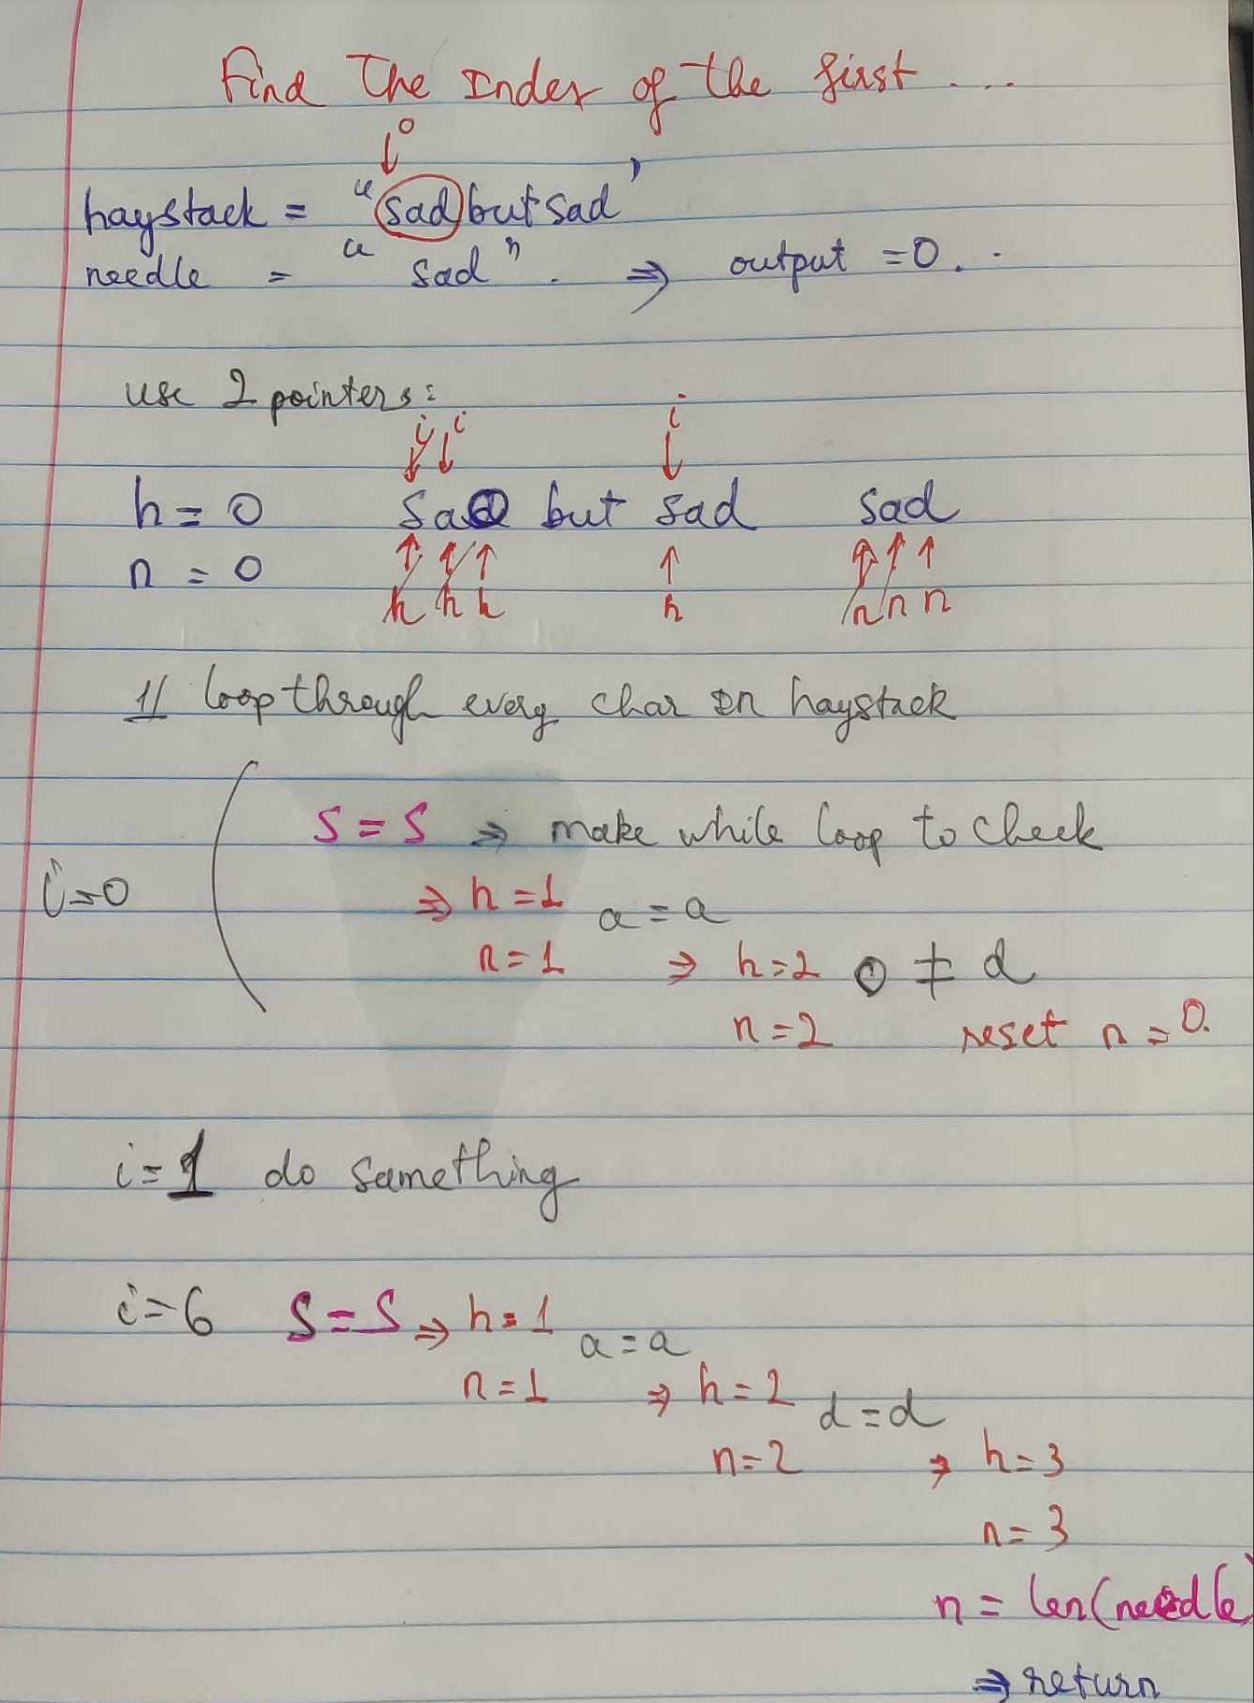 Find The Index of the first ....
0
haystack = "sad but sad"
needle = "sad". ⇒ output = 0.
use 2 pointers:
i i i
h = 0 sao but sad sad
n = 0
h h h h n n n
1/ loop through every char in haystack
S = S ⇒ make while loop to check
i=0 ⇒ h = 1 a = a
n = 1 ⇒ h = 2 o ≠ d
n = 2 reset n = 0.
i = 1 do something
i = 6 S = S ⇒ h = 1 a = a
n = 1 ⇒ h = 2 d = d
n = 2 ⇒ h = 3
n = 3
n = len(needle)
⇒ return